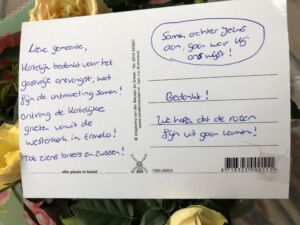 Lieve gemeente,
Hartelijk bedankt voor het
gastvrije ontvangst, wat
fijn de ontmoeting samen!
Ontvang de hartelijke
groeten vanuit de
Westerkerk in Ermelo!
Tot ziens broers en zussen!
Samen achter Jezus
aan, gaan waar Hij
ons wijst!
Bedankt!
We hopen dat de rozen
fijn uit gaan komen!
elke plaats in beeld